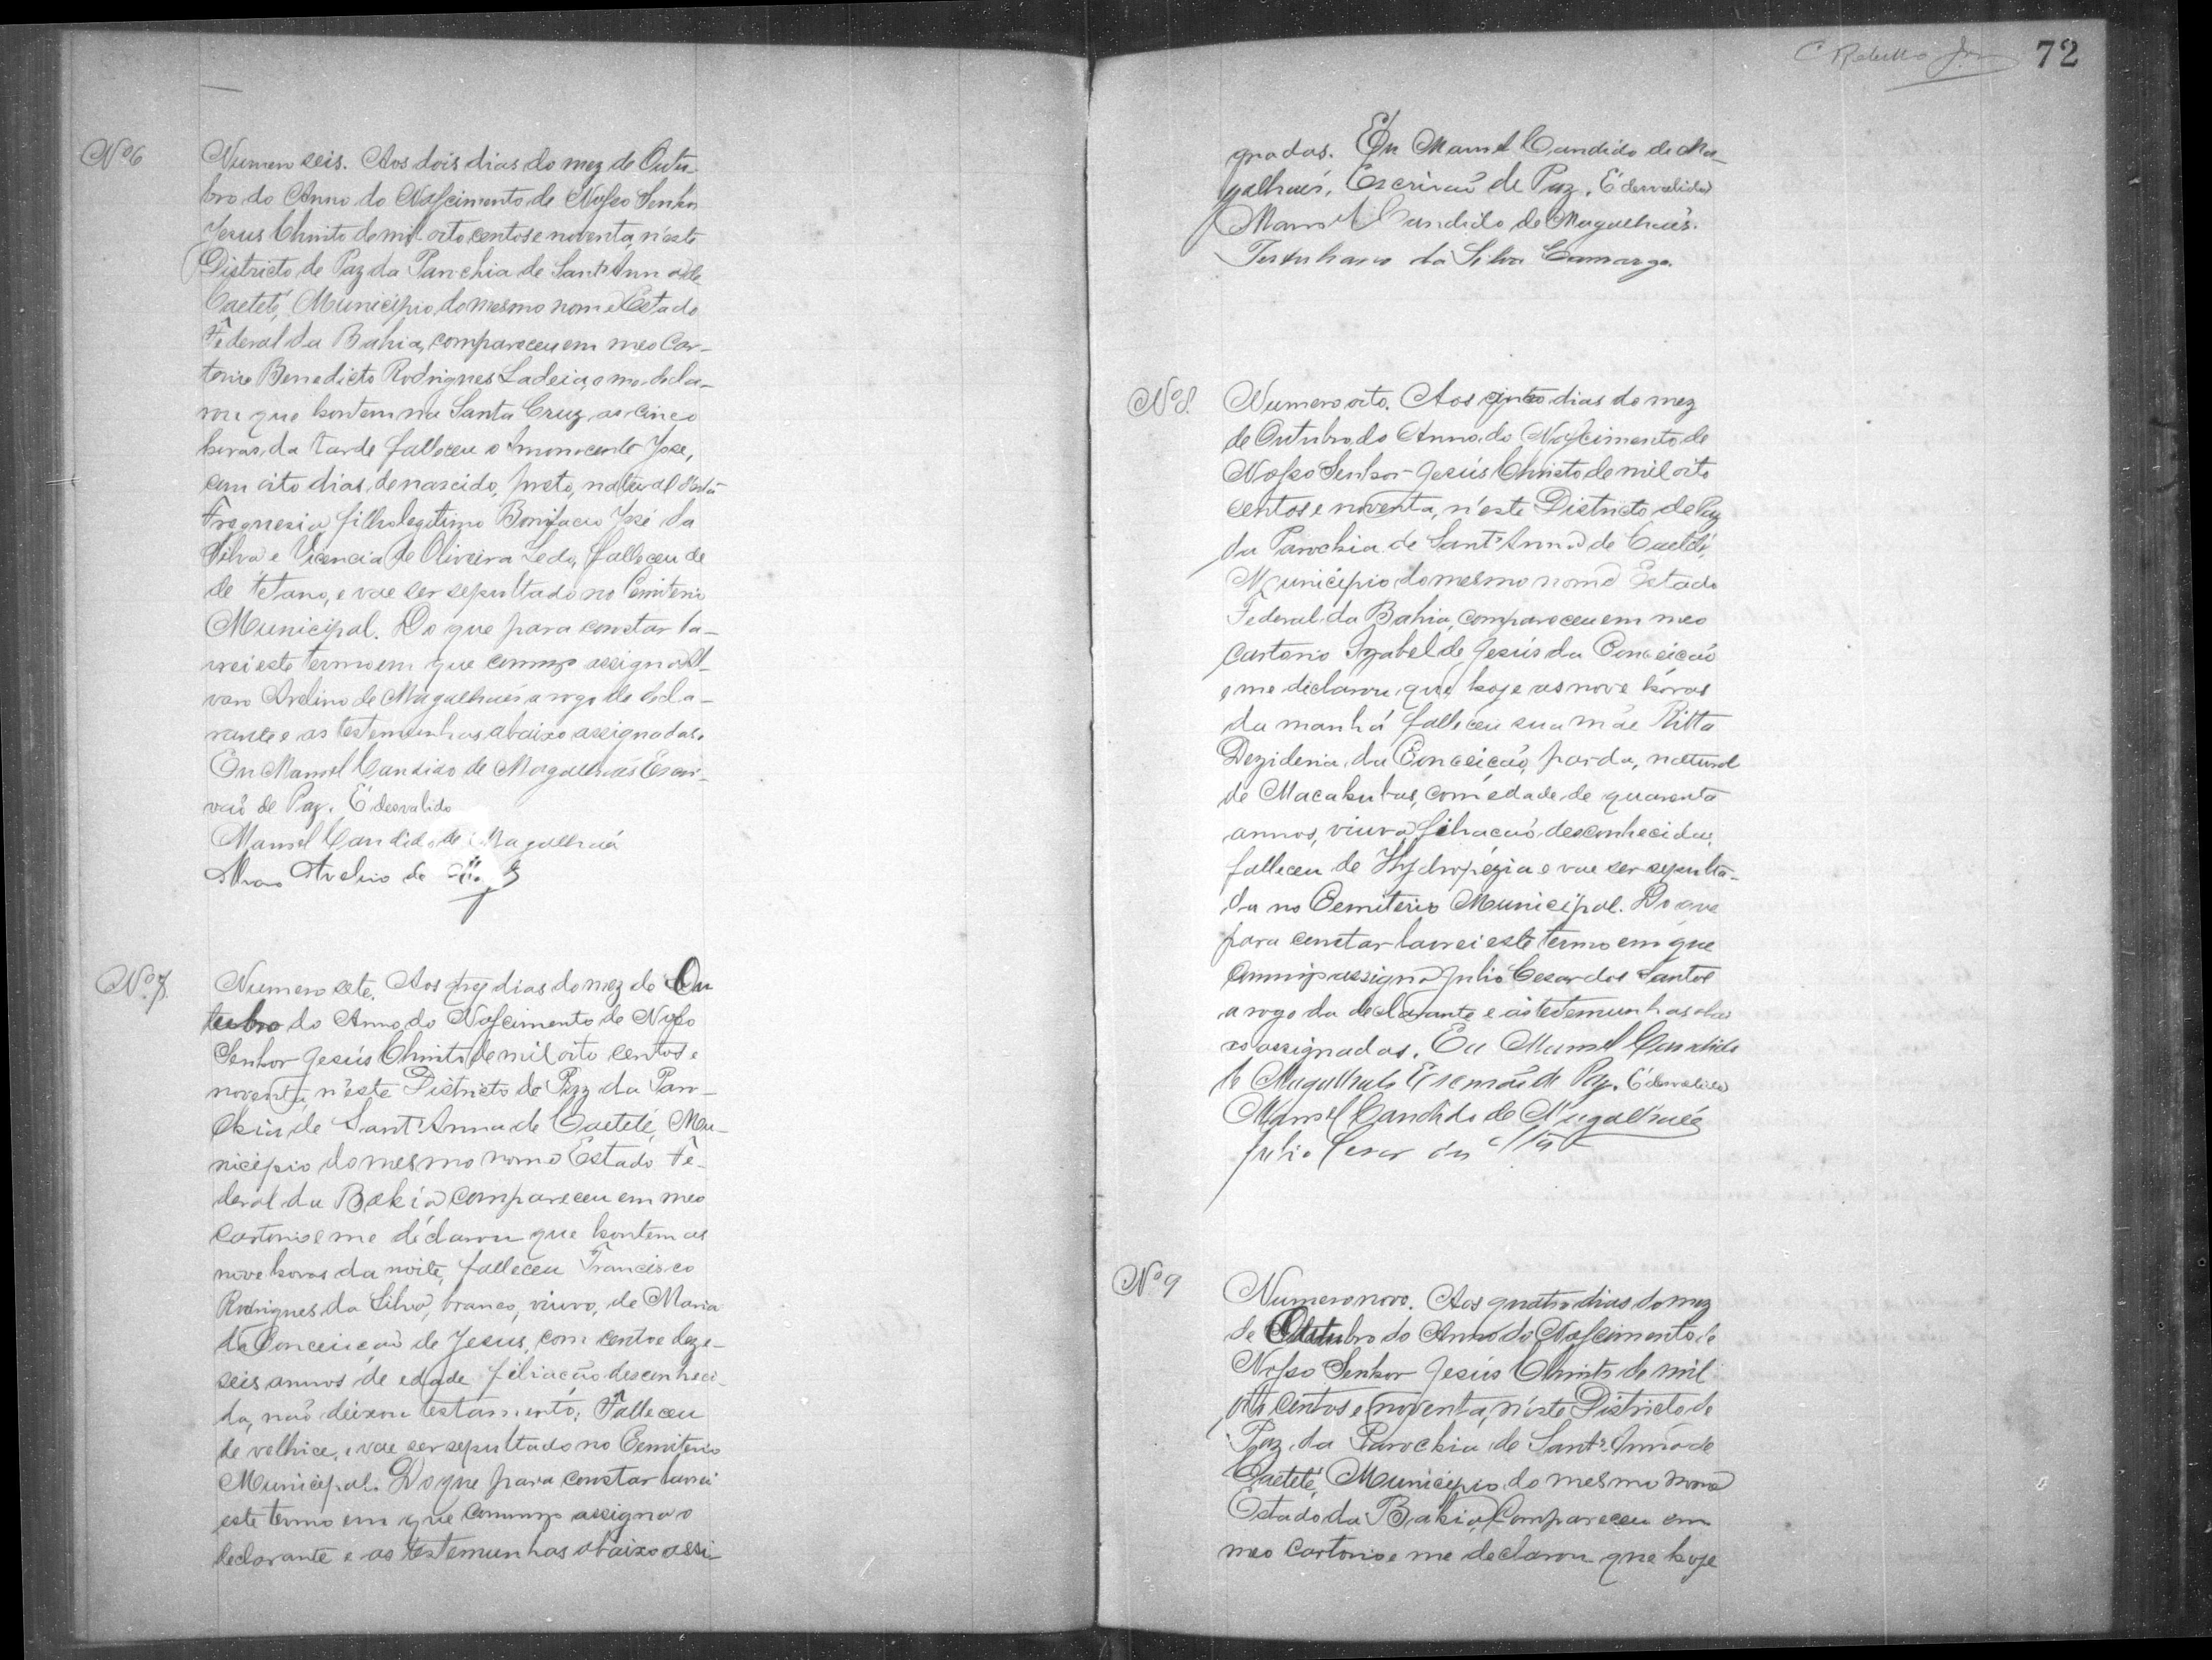 Nº 6
Numero seis. Aos dois dias do mez de Outu-
bro do Anno do Nascimento de Nosso Senhor
Jesus Christo de mil oito centos e noventa, n'este
Districto de Paz da Parochia de Sant'Anna de
Caeteté, Municipio do mesmo nome Estado
Federal da Bahia, compareceu em meo Car-
torio Benedicto Rodrigues Ladeia, e me decla-
rou que hontem na Santa Cruz, as cinco
horas da tarde falleceu o Innocente José,
com oito dias de nascido, preto, natural d'esta
Freguesia filho legitimo Bonifacio José da
Silva e Vicencia de Oliveira Ledo, falleceu de
de tetano, e vae ser sepultado no Cemiterio
Municipal. Do que para constar la-
vrei este termo em que commigo assigna Al-
varo Avelino de Magalhaés a rogo do decla-
rante e as testemunhas abaixo assignadas.
Eu Manoel Candido de Magalhaés Escri-
vaõ de Paz. É desvalido
Manoel Candido de Magalhaés
Alvaro Avelino de
Nº 7.
Numero sete. Aos trez dias do mez de Ou
tubro do Anno do Nascimento de Nosso
Senhor Jesús Christo de mil oito centos e
noventa, n'este Districto de Paz da Paro-
chia de Sant'Anna de Caeteté, Mu-
nicipio do mesmo nome Estado Fe-
deral da Bahia compareceu em meo
Cartorio e me declarou que hontem as
nove horas da noite, falleceu Francisco
Rodrigues da Silva, branco, viuvo, de Maria
da Conceiçaõ de Jesus, com cento e deze-
seis annos de edade filiação desconheci-
da, naõ deixou testamento; Falleceu
de velhice, e vae ser sepultado no Cemiterio
Municipal. Do que para constar lavrei
este termo em que commigo assigna o
declarante e as testemunhas abaixo assi-
C Rebello Jor
72
gnadas. Eu Manoel Candido de Ma-
galhaés, Escrivaõ de Paz. É desvalido
Manoel Candido de Magalhaés.
Tertuliano da Silva Camargo.
Nº 8.
Numero oito. Aos dias do mez
de Outubro do Anno do Nascimento de
Nosso Senhor Jesús Christo de mil oito
centos e noventa, n'este Districto de Paz
da Parochia de Sant'Anna de Caeteté,
Municipio do mesmo nome Estado
Federal da Bahia, compareceu em meo
Cartorio Izabel de Jesús da Conceicaõ
e me declarou que hoje as nove horas
da manhá falleceu sua mãe Ritta
Dezideria da Conceicaõ, parda, natural
de Macahubas, com edade de quarenta
annos, viuva, filiacaõ desconhecida,
falleceu de Hydropezia e vae ser sepulta-
da no Cemiterio Municipal. Do que
para constar lavrei este termo em que
Commigo assigna Julio Cesar dos Santos
a rogo da declarante e as testemunhas abai
xo assignadas. Eu Manoel Candido
de Magalhaés Escrivaõ de Paz. É desvalida
Manoel Candido de Magalhaés
Julio Cesar dos
Nº 9
Numero nove. Aos quatro dias do mez
de Outubro do Anno do Nascimento de
Nosso Senhor Jesús Christo de mil
oito centos e noventa, n'este Districto de
Paz da Parochia de Sant'Anna de
Caeteté, Municipio do mesmo nome
Estado da Bahia, Compareceu em
meo Cartorio e me declarou que hoje